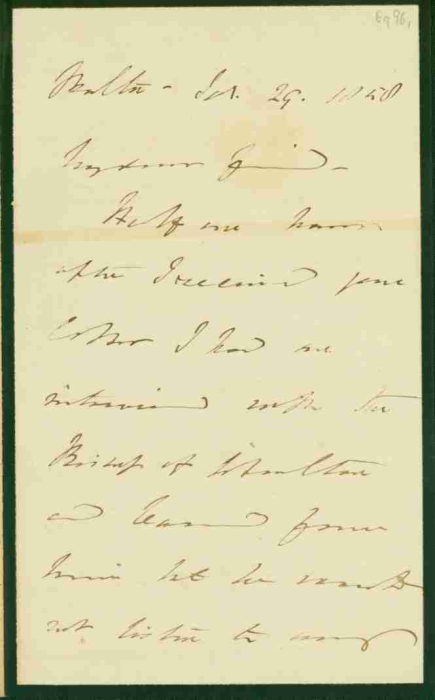 29. 1858
My dear friend -
Half an hour
after I received your
letter I had an
interview with the
Bishop of
and learned from
him that he would
not listen to any